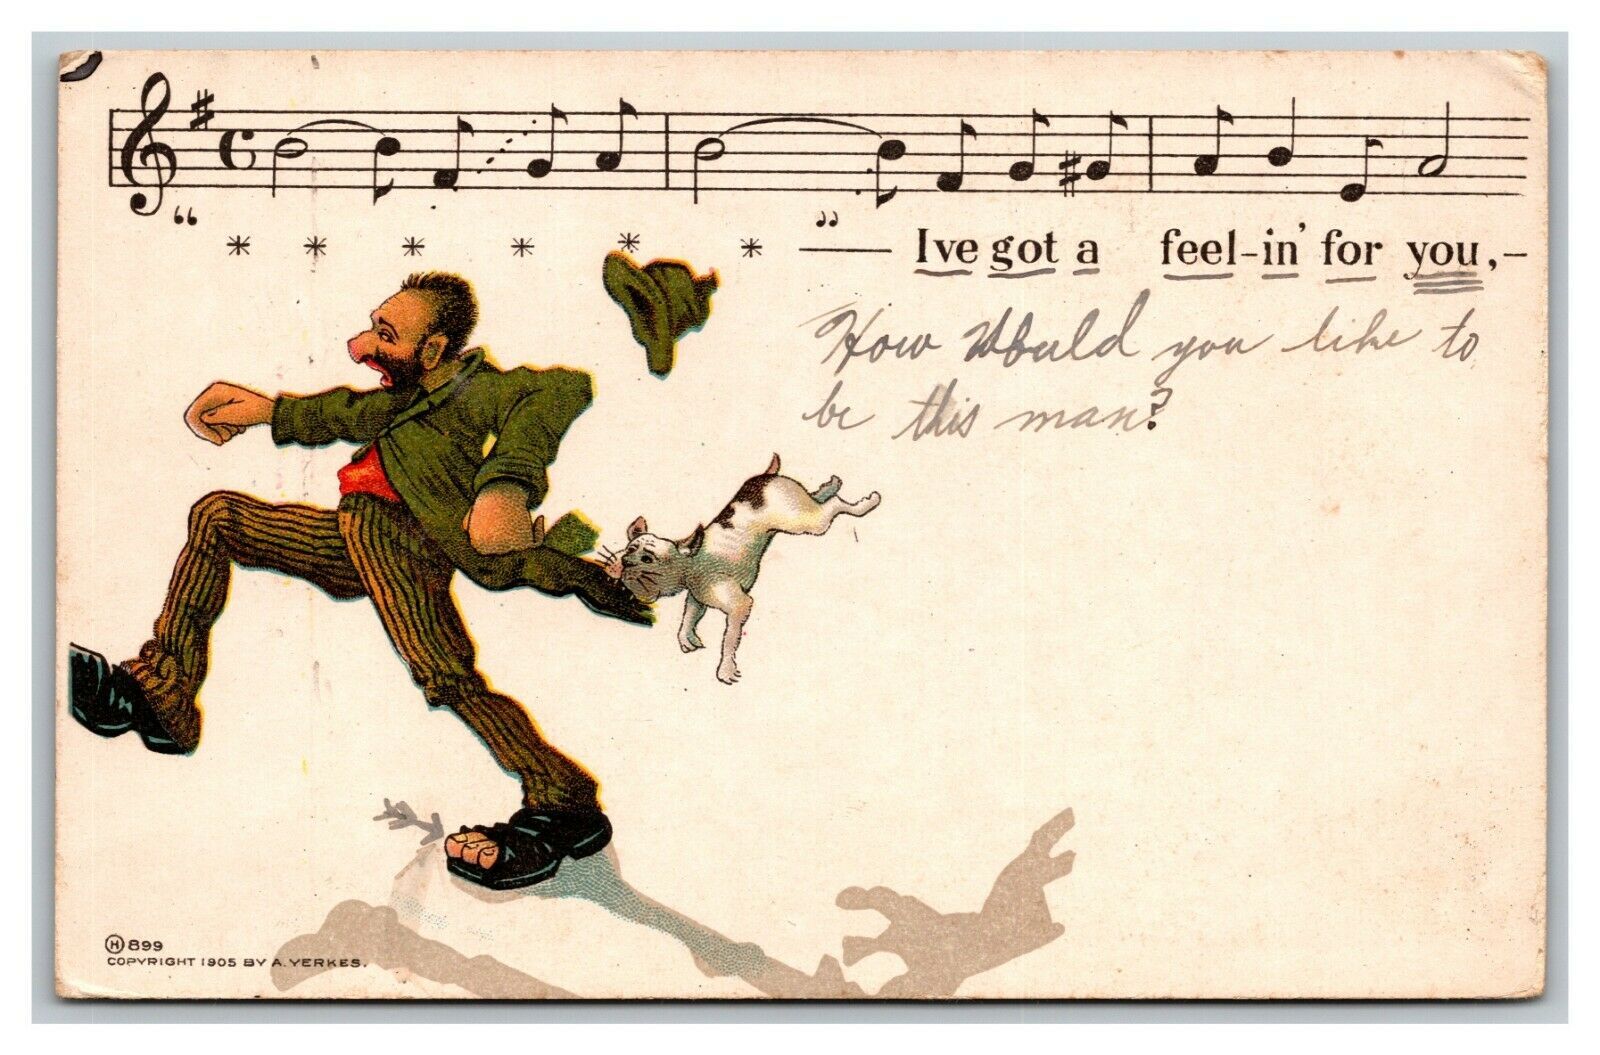 “ * * * * * * ” — Ive got a feel-in’ for you,–
How Would you like to
be this man?
H 899
COPYRIGHT 1905 BY A. YERKES.